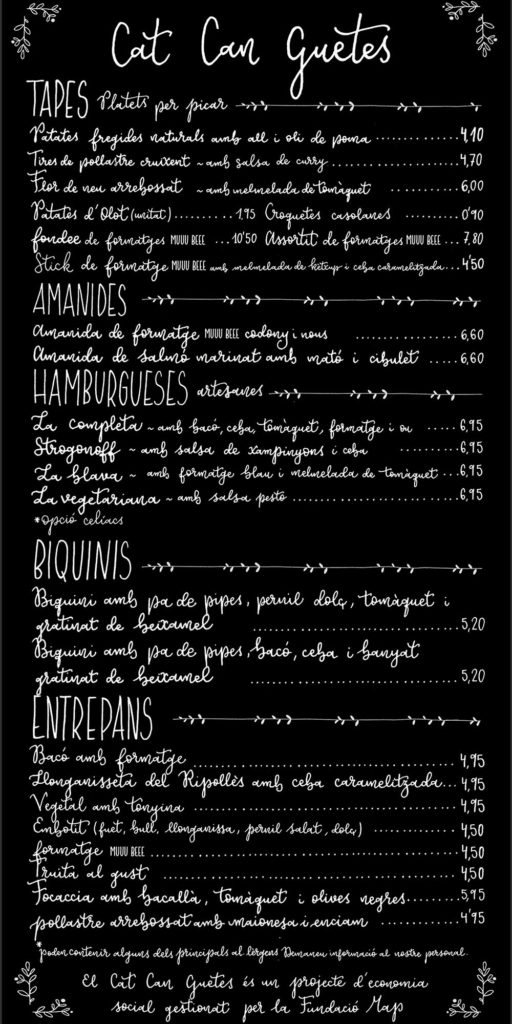 Cat Can Guetes
TAPES Platets per picar
Patates fregides naturals amb all i oli de poma ............ 4,10
Tires de pollastre cruixent ~ amb salsa de curry .................. 4,70
Flor de neu arrebossat ~ amb melmelada de tomàquet .......... 6,00
Patates d'Olot (unitat) ......... 1,95 Croquetes casolanes ......... 0'90
fondee de formatges MUUU BEEE ... 10'50 Assortit de formatges MUUU BEEE ... 7,80
Stick de formatge MUUU BEEE amb melmelada de ketxup i ceba caramelitzada... 4'50
AMANIDES
Amanida de formatge MUUU BEEE codony i nous ............ 6,60
Amanida de salmó marinat amb mató i cibulet ..... 6,60
HAMBURGUESES artesanes
La completa ~ amb bacó, ceba, tomàquet, formatge i ou ...... 6,95
Strogonoff ~ amb salsa de xampinyons i ceba ......... 6,95
La blava ~ amb formatge blau i melmelada de tomàquet ... 6,95
La vegetariana ~ amb salsa pesto ..................... 6,95
*opció celíacs
BIQUINIS
Biquini amb pa de pipes, pernil dolç, tomàquet i
gratinat de beixamel ............................ 5,20
Biquini amb pa de pipes, bacó, ceba i banyat
gratinat de beixamel ............................ 5,20
ENTREPANS
Bacó amb formatge .................................. 4,95
Llonganisseta del Ripollès amb ceba caramelitzada... 4,95
Vegetal amb tonyina .................................. 4,95
Embotit (fuet, bull, llonganissa, pernil salat, dolç) ............... 4,50
formatge MUUU BEEE ..................................... 4,50
Truita al gust ....................................... 4,50
Focaccia amb bacallà, tomàquet i olives negres....... 5,95
pollastre arrebossat amb maionesa i enciam ............. 4'95
*poden contenir alguns dels principals al·lèrgens Demaneu informació al nostre personal.
El Cat Can Guetes és un projecte d'economia
social gestionat per la Fundació Map